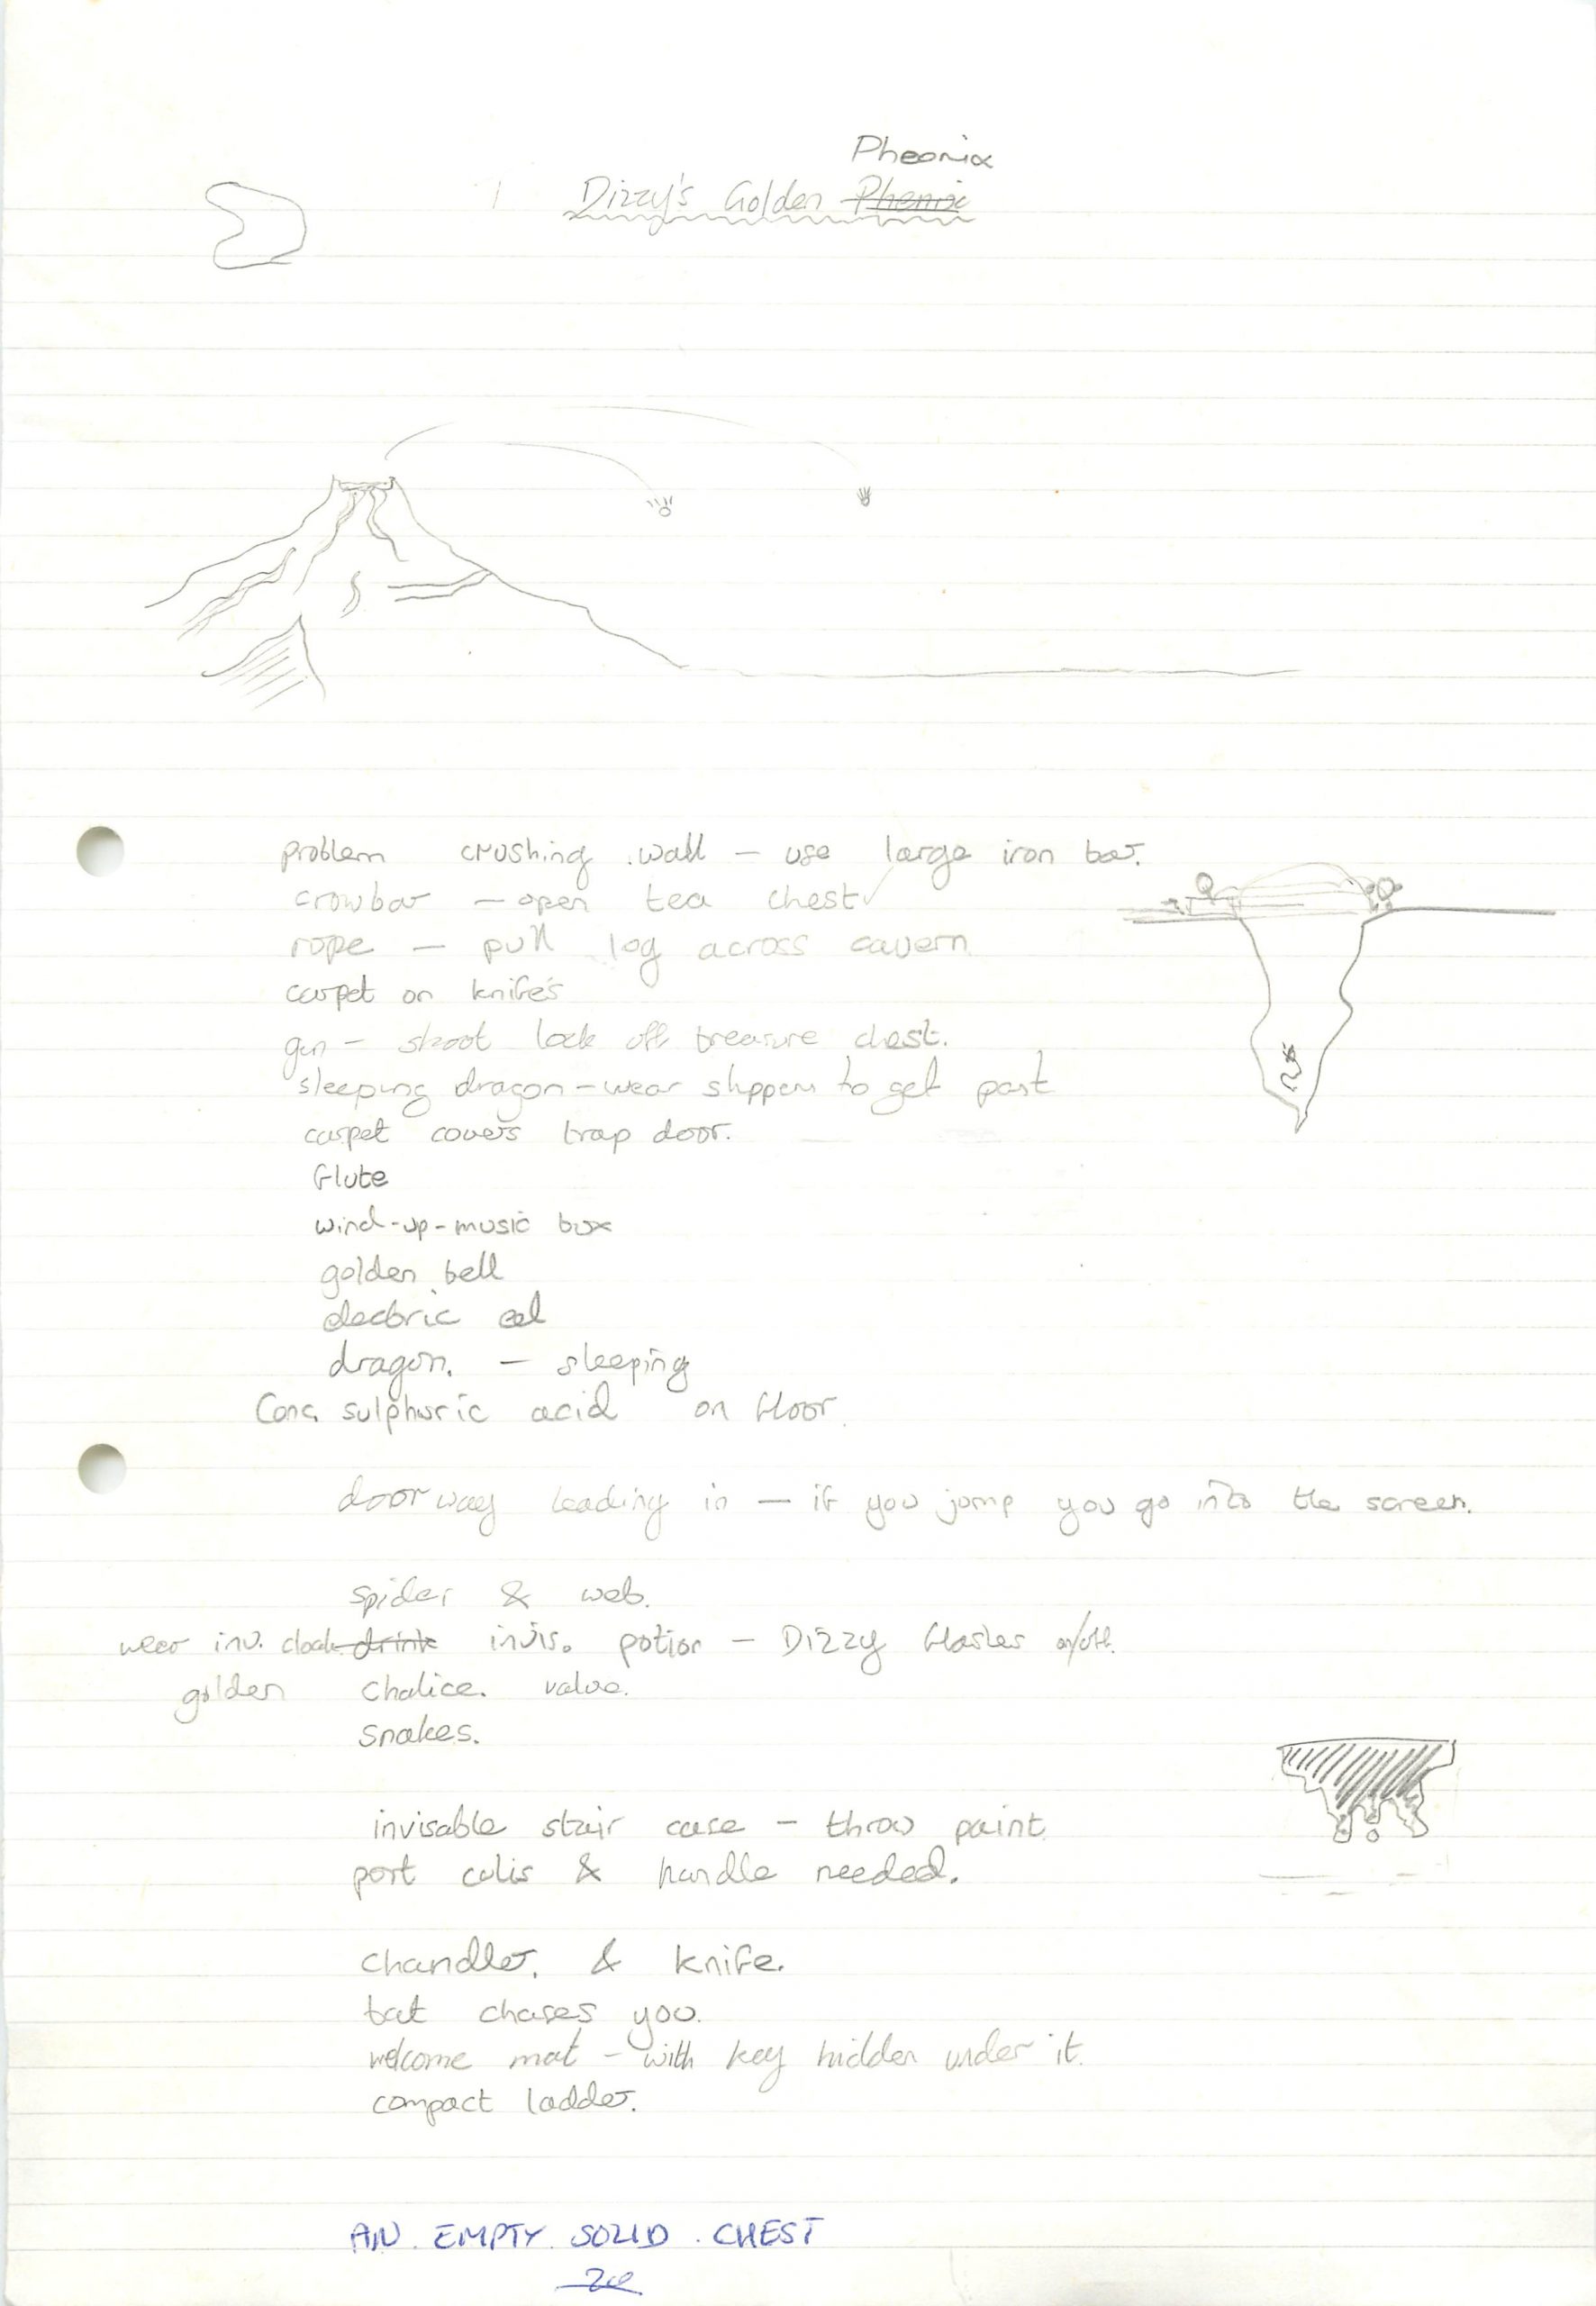 Pheonix
Dizzy's Golden Phenix
problem crushing wall - use large iron bar.
crowbar - open tea chest ✓
rope - pull log across cavern
carpet on knife's
gun - shoot lock off treasure chest.
sleeping dragon - wear slippers to get past
carpet covers trap door.
flute
wind-up-music box
golden bell
electric eel
dragon. - sleeping
Conc. sulphuric acid on floor.
doorway leading in - if you jump you go into the screen.
spider & web.
wear inv. cloak drink invis. potion - Dizzy flashes on/off.
golden chalice. value.
snakes.
invisable stair case - throw paint
port culis & handle needed.
chandler. & knife.
bat chases you.
welcome mat - with key hidden under it.
compact ladder.
AN EMPTY SOLID CHEST
20